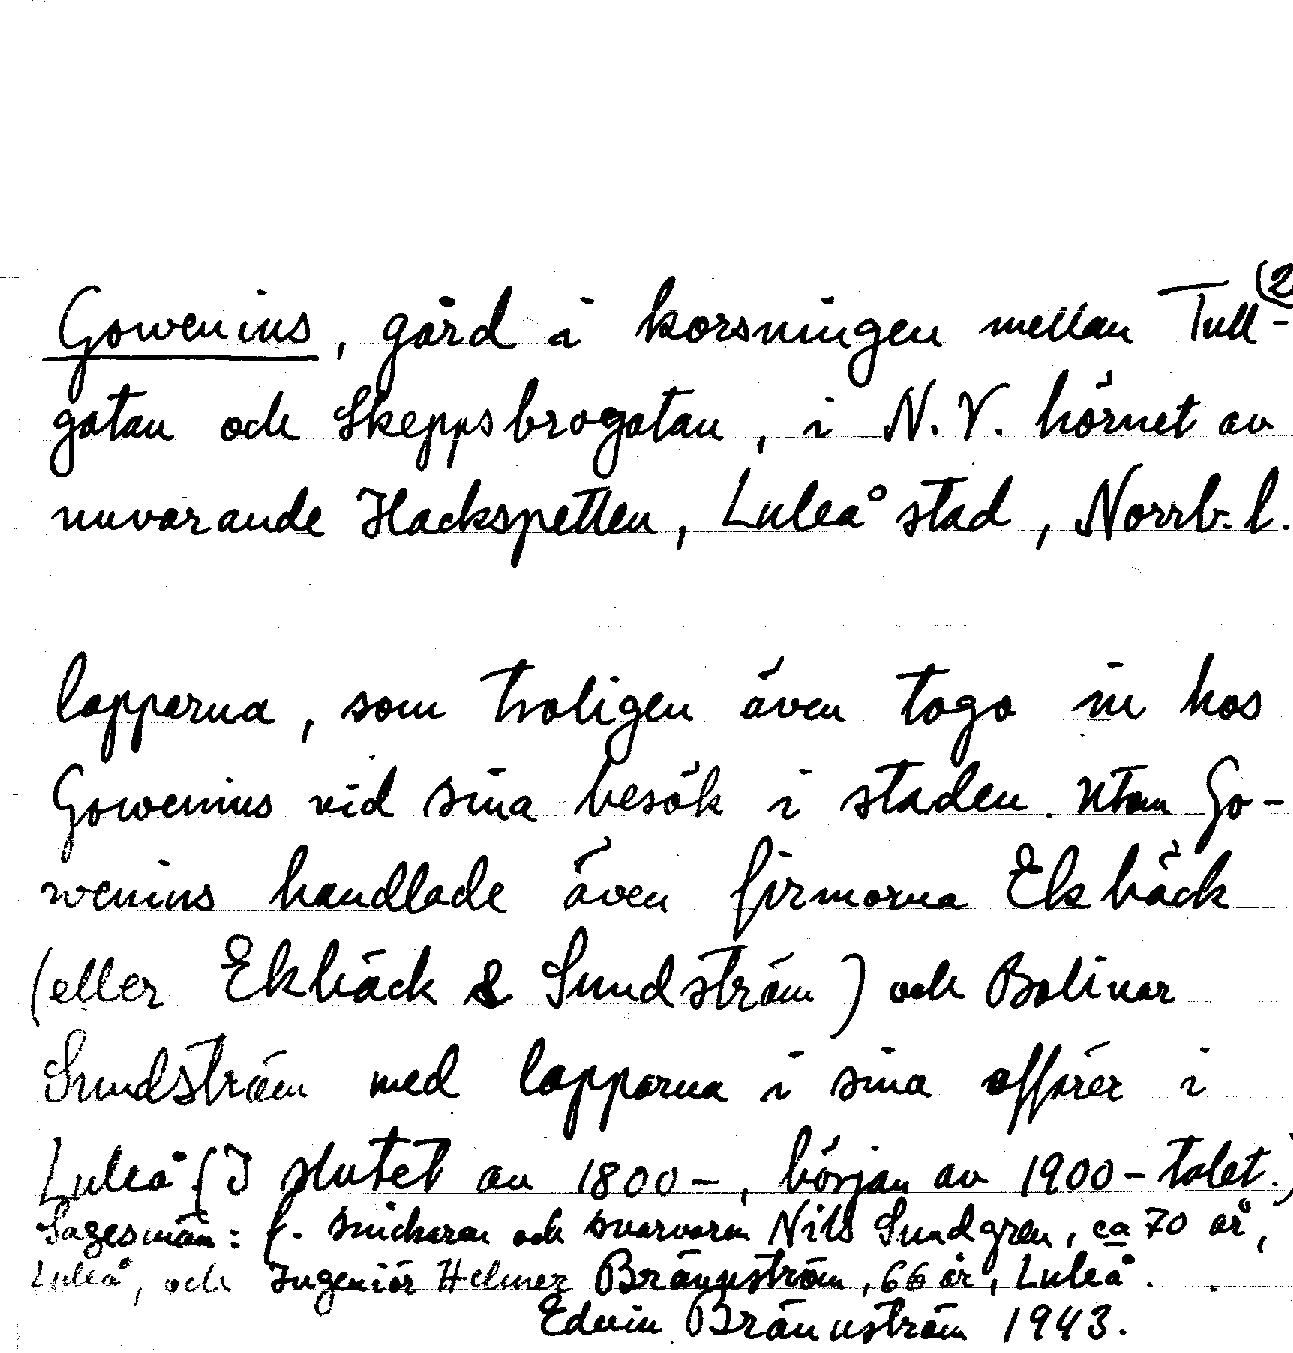 (2
Gowenius, gård i korsningen mellan Tull-
gatan och Skeppsbrogatan, i N.V. hörnet av
nuvarande Hackspetten, Luleå stad, Norrb. l.
lapparna, som troligen även togo in hos
Gowenius vid sina besök i staden. Utom Go-
wenius handlade även firmorna Ekbäck
(eller Ekbäck & Sundström) och Bolivar
Sundström med lapparna i sina affärer i
Luleå (I slutet av 1800-, början av 1900-talet.)
Sagesmän: f. snickaren och svarvaren Nils Sundgren, ca 70 år,
Luleå, och Ingeniör Helmer Brännström, 66 år, Luleå.
Edvin Brännström 1943.